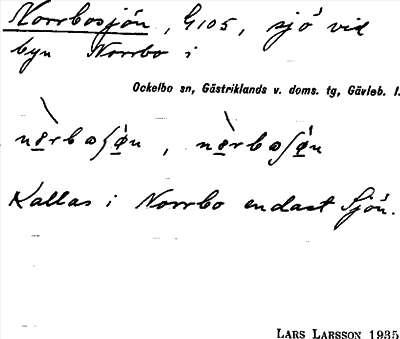 Norrbosjön, G105, sjö vid
byn Norrbo i
Ockelbo sn, Gästriklands v. doms. tg, Gävleb. l.
Kallas i Norrbo endast Sjön.
LARS LARSSON 1935